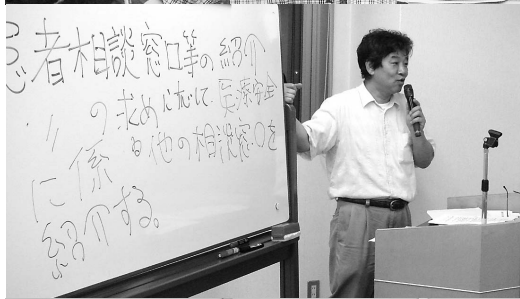 患者相談窓口等の紹介
〃 の求めに応じて、医療安全
に係る他の相談窓口を
紹介する。